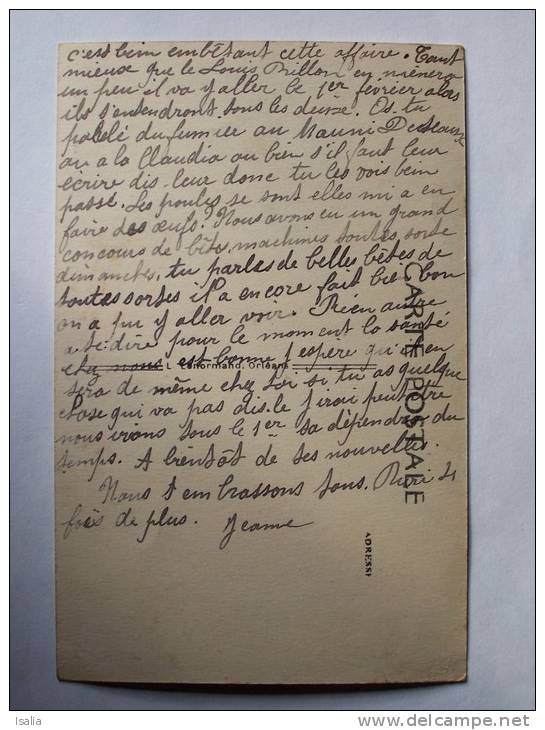 c'est bien embêtant cette affaire. Tant
mieux que le Louis Brillon en mènera
un peu il va y aller le 1er février alors
ils s'entendront tous les deux. As-tu
palelé du fumier au Mauni
ou a la Claudia ou bien s'il faut leur
écrire dis-leur donc tu les vois bien
passé. Les poules se sont elles mi a en
faire des œufs? Nous avons eu un grand
concours de bêtes, machines toutes sorte
dimanches, tu parles de belles bêtes de
toutes sortes il a encore fait bien bon
on a pu y aller voir. Rien autre
a te dire pour le moment la santé
chez nous est bonne j'espère qu'il en
sera de même chez toi si tu as quelque
chose qui va pas dis-le j'irai peut être
nous irons tous le 1er sa dépendra du
temps. A bientôt de tes nouvelles.
Nous t'embrassons tous. Riri 4
fois de plus. Jeanne
CARTE POSTALE
Lenormand, Orléans
ADRESSE
Isalia
http://www.delcampe.net